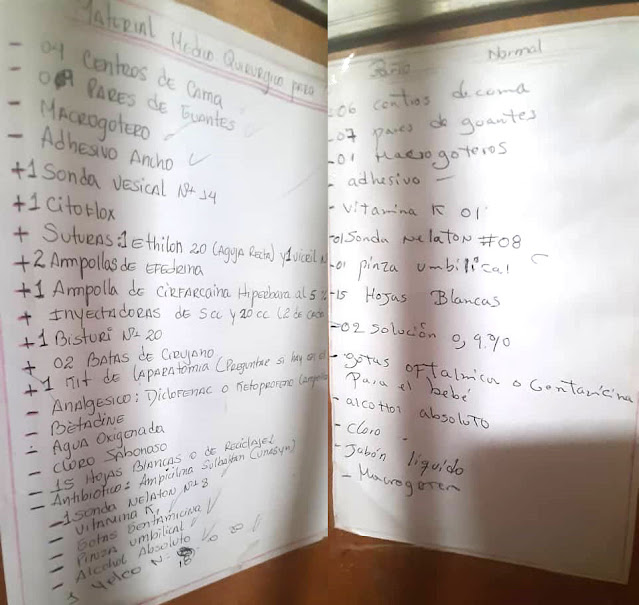 Material Medico Quirurgico para
- 04 Centros de Cama
- 09 Pares de Guantes
- Macrogotero
- Adhesivo Ancho
+1 Sonda Vesical Nº 14
+1 Citoflox
+ Suturas: 1 Ethilon 2.0 (Aguja Recta) y 1 vicril N
+2 Ampollas de Efedrina
+1 Ampolla de Cirfarcaina Hiperbara al 5 %
+ Inyectadoras de 5cc y 20cc (2 de cada
+1 Bisturi Nº 20
+ 02 Batas de Cirujano
+1 Kit de Laparatomia (Preguntar si hay en el
- Analgesico: Diclofenac o Ketoprofeno
- Betadine
- Agua Oxigenada
- Cloro Sabonoso
- 15 Hojas Blancas o de Reciclaje
- Antibiotico: Ampicilina Sulbaktan (Unasyn)
- 1 Sonda Nelaton Nº 8
- Vitamina K1
- Gotas Gentamicina
- Pinza Umbilical
- Alcohol Absoluto
Yelco Nº 18
Parto Normal
- 06 centros de cama
- 07 pares de guantes
- 01 Macrogoteros
- adhesivo -
- Vitamina K 01
- 01 Sonda Nelaton #08
- 01 pinza umbilical
- 15 Hojas Blancas
- 02 Solución 0,9%
- gotas oftalmica o Gentamicina
Para el bebé
- alcohol absoluto
- Cloro
- Jabón líquido
- Macrogoter